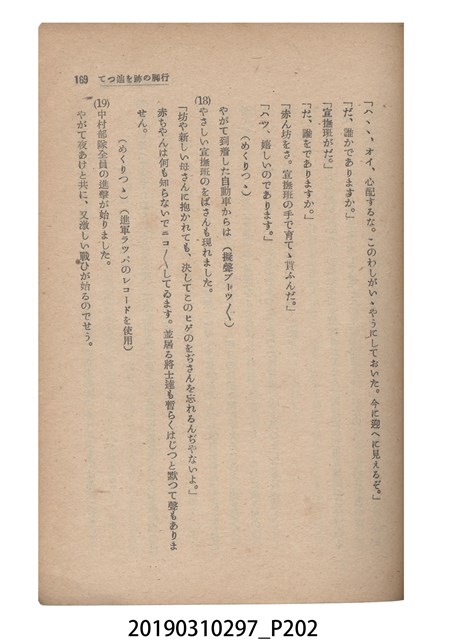 行脚の跡を追つて 169
「ハ、、、オイ、心配するな。このわしがいゝやうにしておいた。今に迎へに見えるぞ。」
「だ、誰かでありますか。」
「宣撫班がだ。」
「だ、誰をでありますか。」
「赤ん坊をさ。宣撫班の手で育てゝ貰ふんだ。」
「ハツ、嬉しいのであります。」
(めくりつゝ)
やがて到着した自動車からは(擬聲ブーツ〳〵)
(18)やさしい宣撫班のをばさんも現れました。
「坊や新しい母さんに抱かれても、決してこのヒゲのをぢさんを忘れるんぢやないよ。」
赤ちやんは何も知らないでニコ〳〵してゐます。並居る將士達も暫らくはじつと默つて聲もありま
せん。
(めくりつゝ)(進軍ラツパのレコードを使用)
(19)中村部隊全員の進撃が始りました。
やがて夜あけと共に、又激しい戰ひが始るのでせう。
20190310297_P202